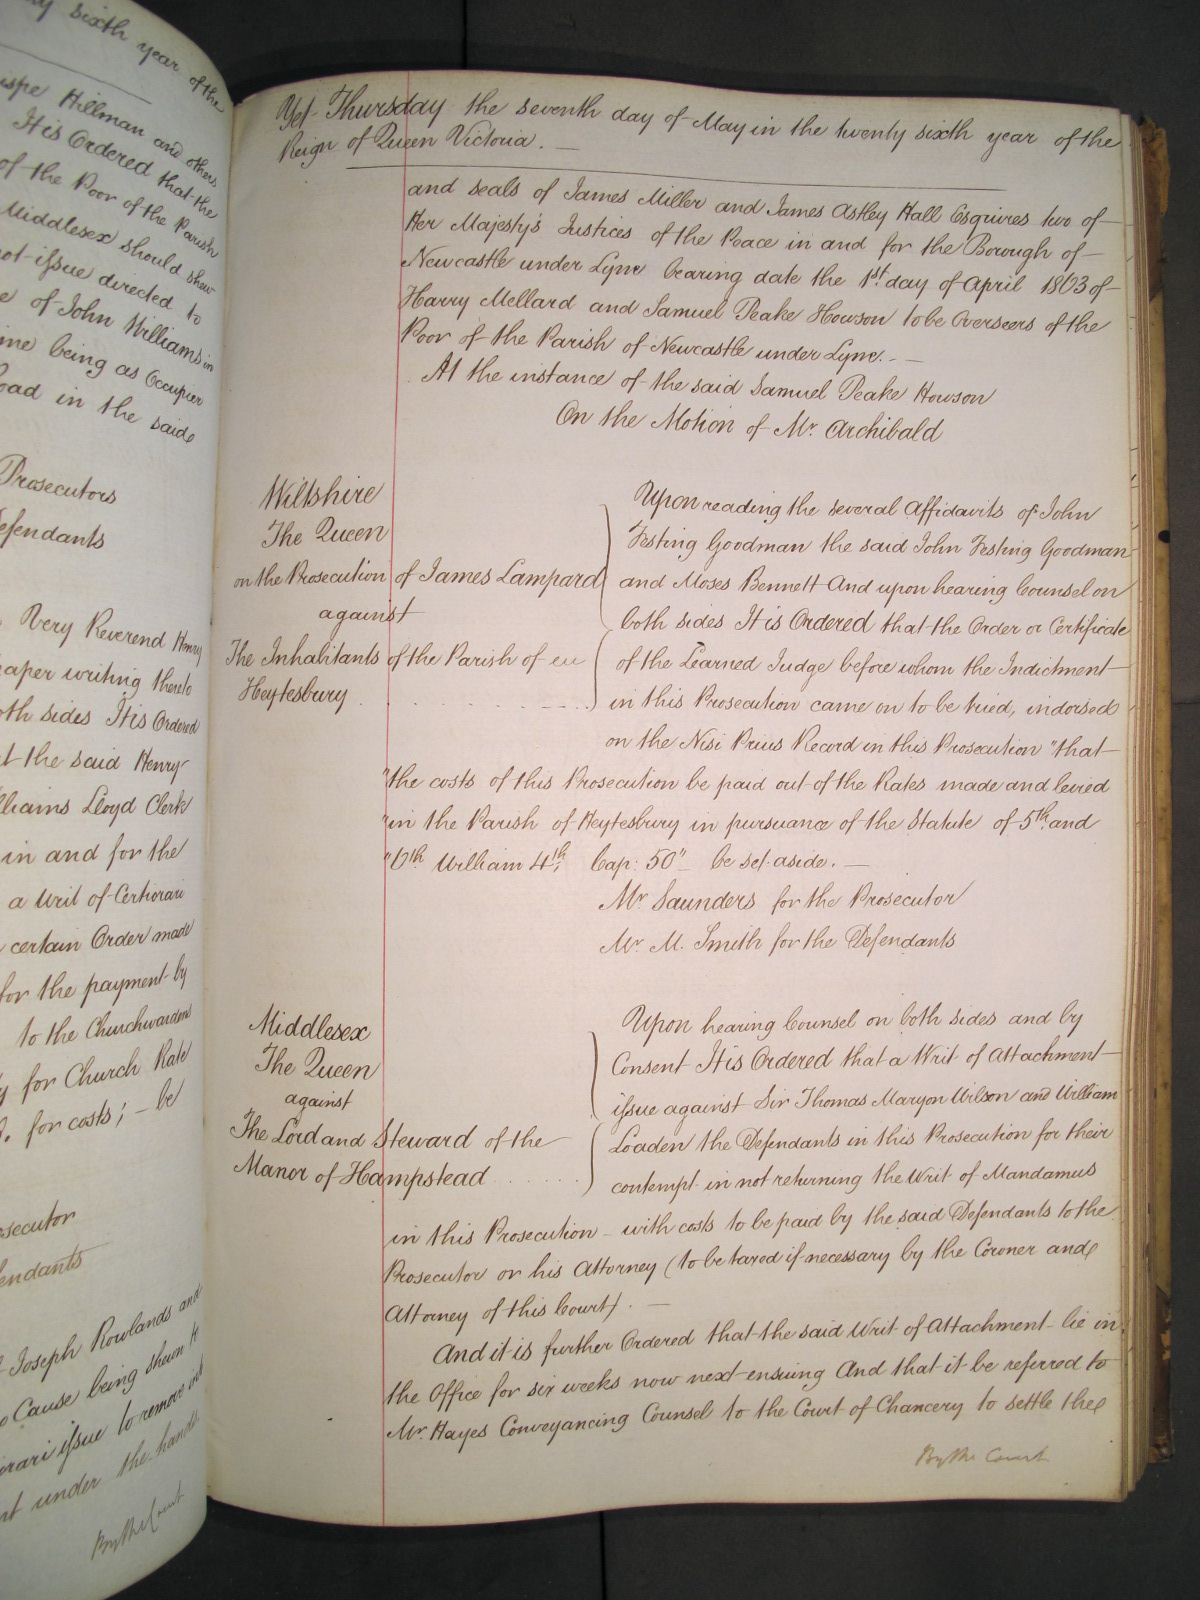 sixth year of the
Hillman and others
It is Ordered that the
of the Poor of the Parish
Middlesex should shew
not issue directed to
of John Williams in
being as Occupier
Road in the said
Prosecutors
Defendants
Very Reverend Henry
paper writing thereto
both sides It is Ordered
the said Henry
Williams Lloyd Clerk
in and for the
a Writ of Certiorari
certain Order made
for the payment by
to the Churchwardens
for Church Rate
for costs; – be
Prosecutor
Defendants
Joseph Rowlands and
Cause being shewn to
issue to remove into
under the hands
By the Court
Yet Thursday the seventh day of May in the twenty sixth year of the
Reign of Queen Victoria. —
and seals of James Miller and James Astley Hall Esquires two of
Her Majesty's Justices of the Peace in and for the Borough of
Newcastle under Lyme bearing date the 1st. day of April 1863 of
Harry Mellard and Samuel Peake Howson to be Overseers of the
Poor of the Parish of Newcastle under Lyme. —
At the instance of the said Samuel Peake Howson
On the Motion of Mr. Archibald
Wiltshire
The Queen
on the Prosecution of James Lampard
against
The Inhabitants of the Parish of
Heytesbury
Upon reading the several Affidavits of John
Festing Goodman the said John Festing Goodman
and Moses Bennett And upon hearing Counsel on
both sides It is Ordered that the Order or Certificate
of the Learned Judge before whom the Indictment
in this Prosecution came on to be tried, indorsed
on the Nisi Prius Record in this Prosecution "that
"the costs of this Prosecution be paid out of the Rates made and levied
"in the Parish of Heytesbury in pursuance of the Statute of 5th. and
"6th William 4th, Cap: 50" – be set aside. —
Mr. Saunders for the Prosecutor
Mr. M. Smith for the Defendants
Middlesex
The Queen
against
The Lord and Steward of the
Manor of Hampstead
Upon hearing Counsel on both sides and by
Consent It is Ordered that a Writ of Attachment
issue against Sir Thomas Maryon Wilson and William
Loaden the Defendants in this Prosecution for their
contempt in not returning the Writ of Mandamus
in this Prosecution – with costs to be paid by the said Defendants to the
Prosecutor or his Attorney (to be taxed if necessary by the Coroner and
Attorney of this Court). —
And it is further Ordered that the said Writ of Attachment lie in
the Office for six weeks now next ensuing And that it be referred to
Mr. Hayes Conveyancing Counsel to the Court of Chancery to settle the
By the Court